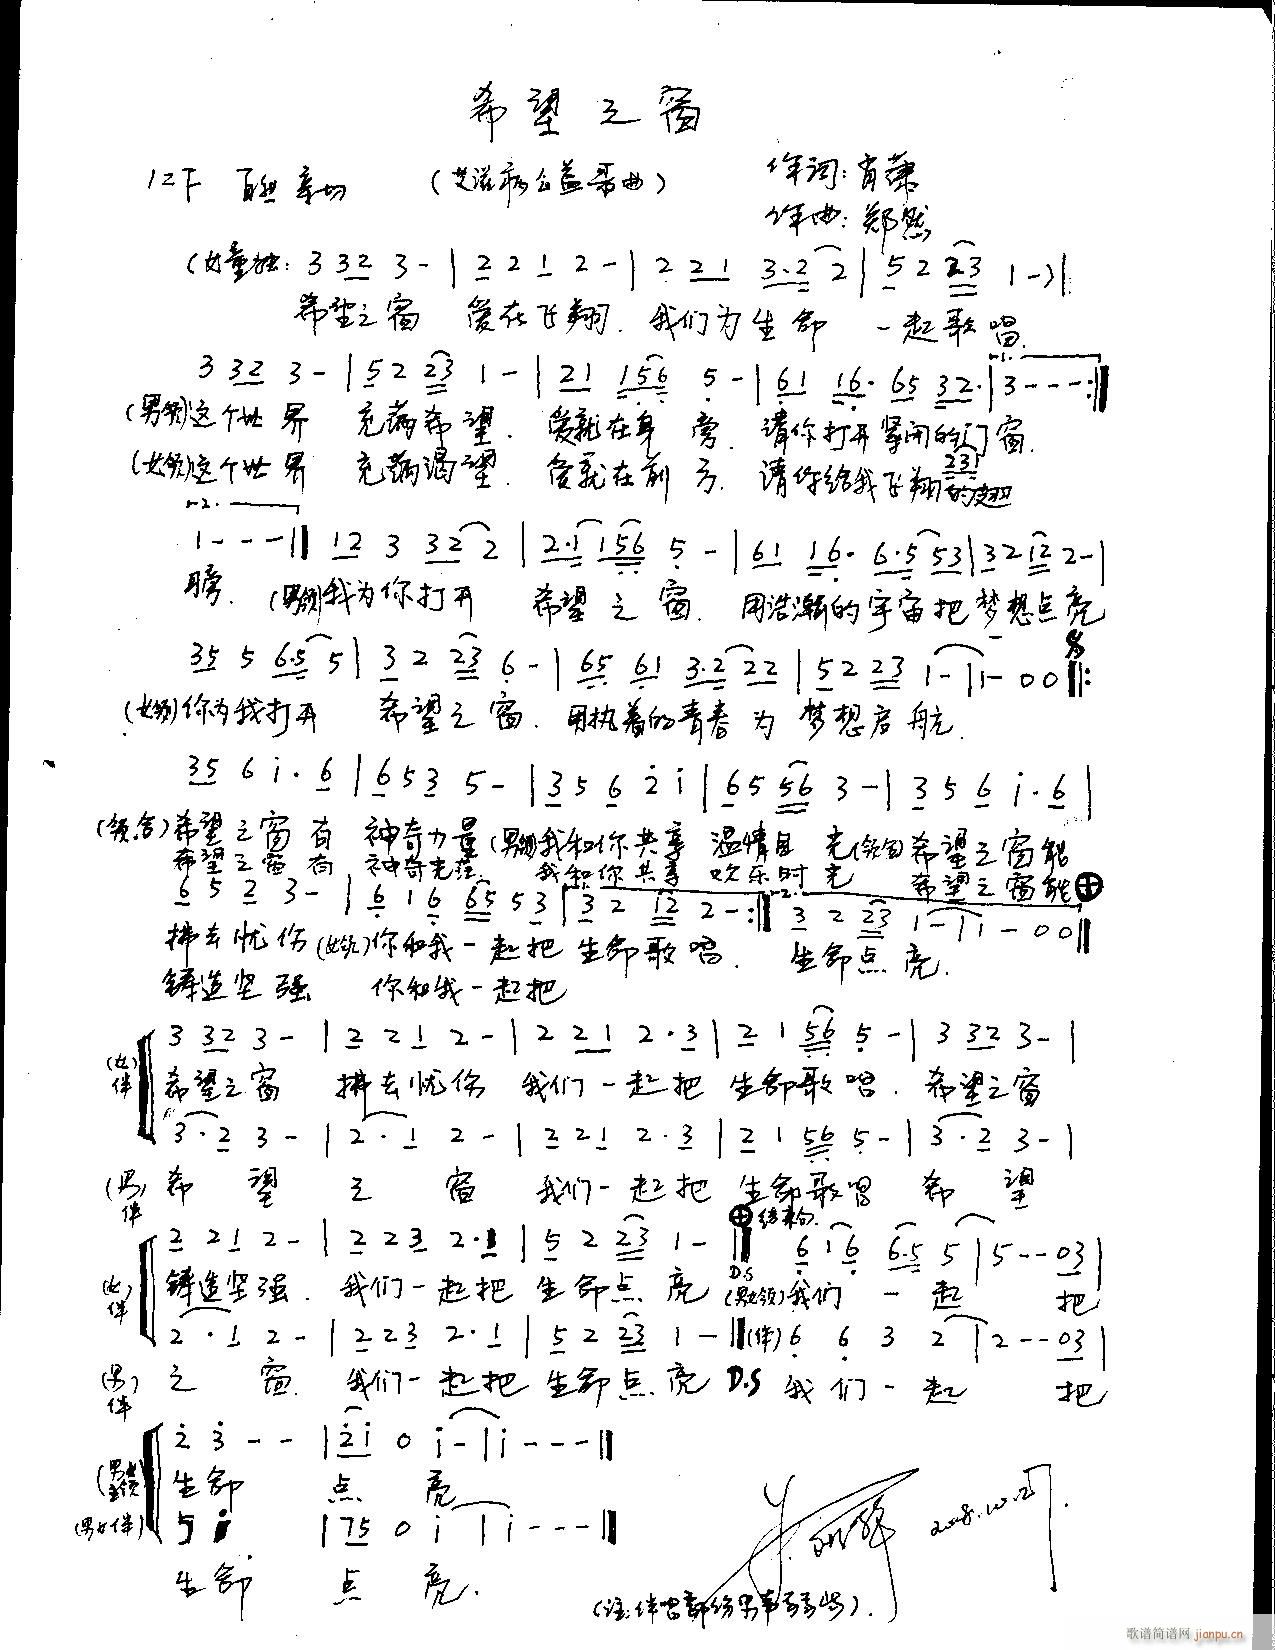 希望之窗
1=F
(艾滋病公益歌曲)
作词:肖萧
作曲:郑然
(女童独: 3 3 3 2 3 - | 2 2 1 2 - | 2 2 1 3·2 2 | 5 2 2 3 1 -) |
希望之窗 爱在飞翔. 我们为生命 一起歌唱.
3 3 2 3 - | 5 2 2 3 1 - | 2 1 1 5 6 5 - | 6 1 1 6· 6 5 3 2· | 3 - - - :||
(男领)这个世界 充满希望. 爱就在身旁. 请你打开紧闭的门窗.
(女领)这个世界 充满渴望. 爱就在前方. 请你给我飞翔的翅
2 3 1
1 - - - || 1 2 3 3 2 2 | 2·1 1 5 6 5 - | 6 1 1 6· 6·5 5 3 | 3 2 1 2 2 - |
膀. (男领)我为你打开 希望之窗. 用浩瀚的宇宙把梦想点亮
3 5 5 6·5 5 | 3 2 2 3 6 - | 6 5 6 1 3·2 2 2 | 5 2 2 3 1 - | 1 - 0 0 ||:
(女领)你为我打开 希望之窗. 用执着的青春为梦想启航.
3 5 6 i· 6 | 6 5 3 5 - | 3 5 6 2 i | 6 5 5 6 3 - | 3 5 6 i· 6 |
(领合)希望之窗有 神奇力量 (男领)我和你共享 温情目光 (领合)希望之窗能
希望之窗有 神奇光芒. 我和你共享 欢乐时光 希望之窗能
6 5 2 3 - | 6 1 6 6 5 5 3 | 3 2 1 2 2 - :|| 3 2 2 3 1 - | 1 - 0 0 ||
拂去忧伤 (女领)你和我一起把生命歌唱. 生命点亮.
铸造坚强 你和我一起把
3 3 2 3 - | 2 2 1 2 - | 2 2 1 2·3 | 2 1 5 6 5 - | 3 3 2 3 - |
(女伴) 希望之窗 拂去忧伤 我们一起把 生命歌唱. 希望之窗
3·2 3 - | 2·1 2 - | 2 2 1 2·3 | 2 1 5 6 5 - | 3·2 3 - |
(男伴) 希望 之窗 我们一起把 生命歌唱 希望
结束句.
2 2 1 2 - | 2 2 3 2·1 | 5 2 2 3 1 - || 6 1 6 6·5 5 | 5 - - 0 3 |
(女伴) 铸造坚强. 我们一起把 生命点亮 D.S (男女领)我们一起 把
2·1 2 - | 2 2 3 2·1 | 5 2 2 3 1 - || (伴) 6 6 3 2 | 2 - - 0 3 |
(男伴) 之窗. 我们一起把 生命点亮 D.S 我们一起 把
2 3 - - | 2 i 0 i - | i - - - ||
生命 点 亮
(男女伴) 5 i | 7 5 0 i | i - - - ||
生命 点 亮.
2008.10.27.
歌谱简谱网 jianpu.cn